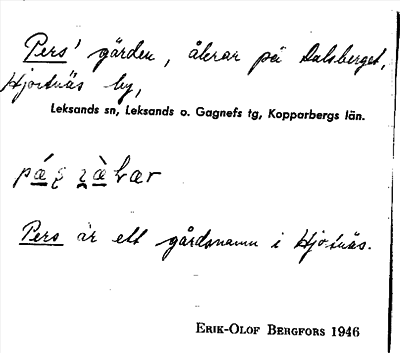 Pers' gärden, åkrar på Dalsberget,
Hjortnäs by,
Leksands sn, Leksands o. Gagnefs tg, Kopparbergs län.
Pers är ett gårdsnamn i Hjortnäs.
ERIK-OLOF BERGFORS 1946